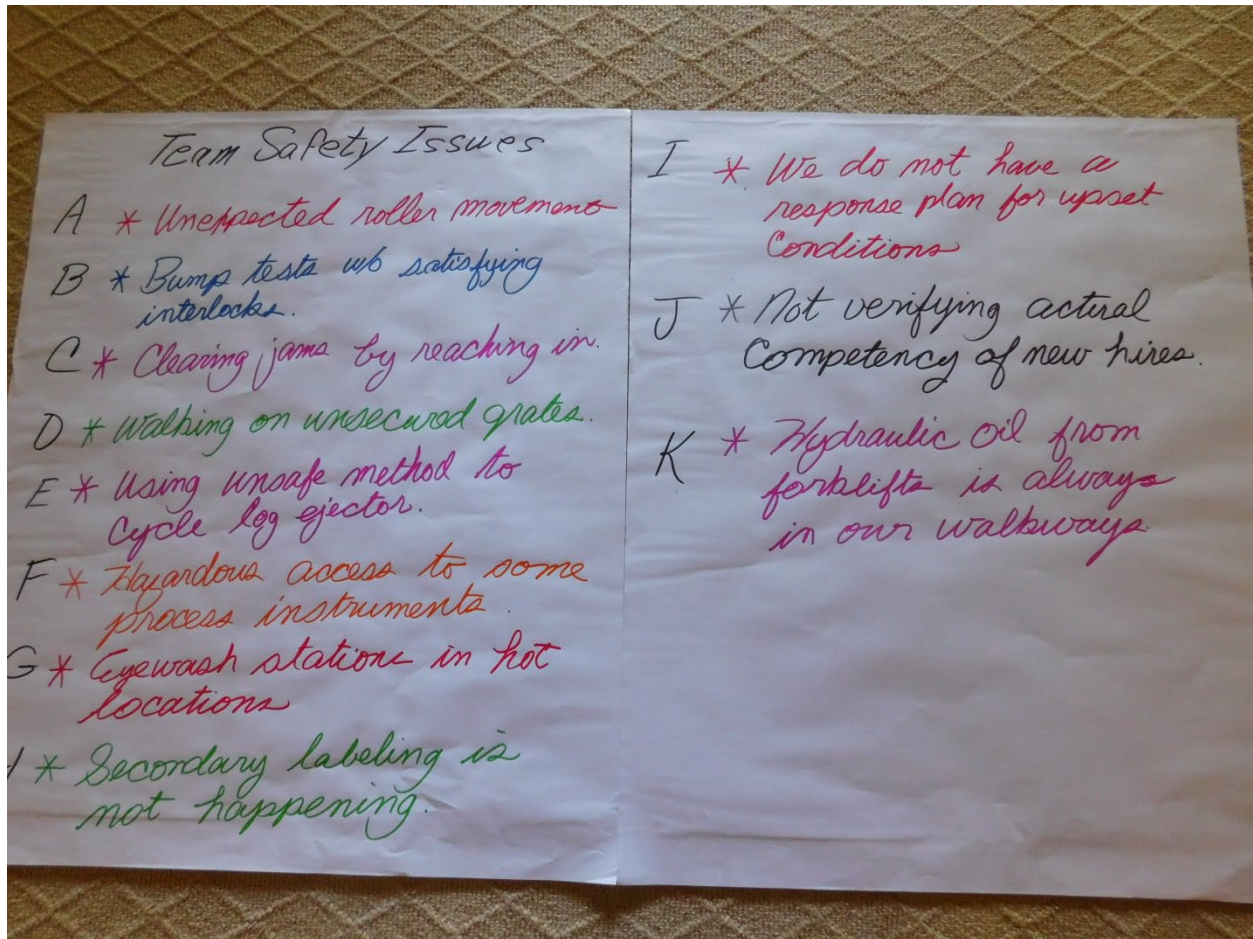 Team Safety Issues
A * Unexpected roller movement
B * Bump tests w/o satisfying
interlocks.
C * Clearing jams by reaching in.
D * Walking on unsecured grates.
E * Using unsafe method to
Cycle log ejector.
F * Hazardous access to some
process instruments.
G * Eyewash stations in hot
locations
* Secondary labeling is
not happening.
I * We do not have a
response plan for upset
Conditions
J * Not verifying actual
Competency of new hires.
K * Hydraulic oil from
forklifts is always
in our walkways.